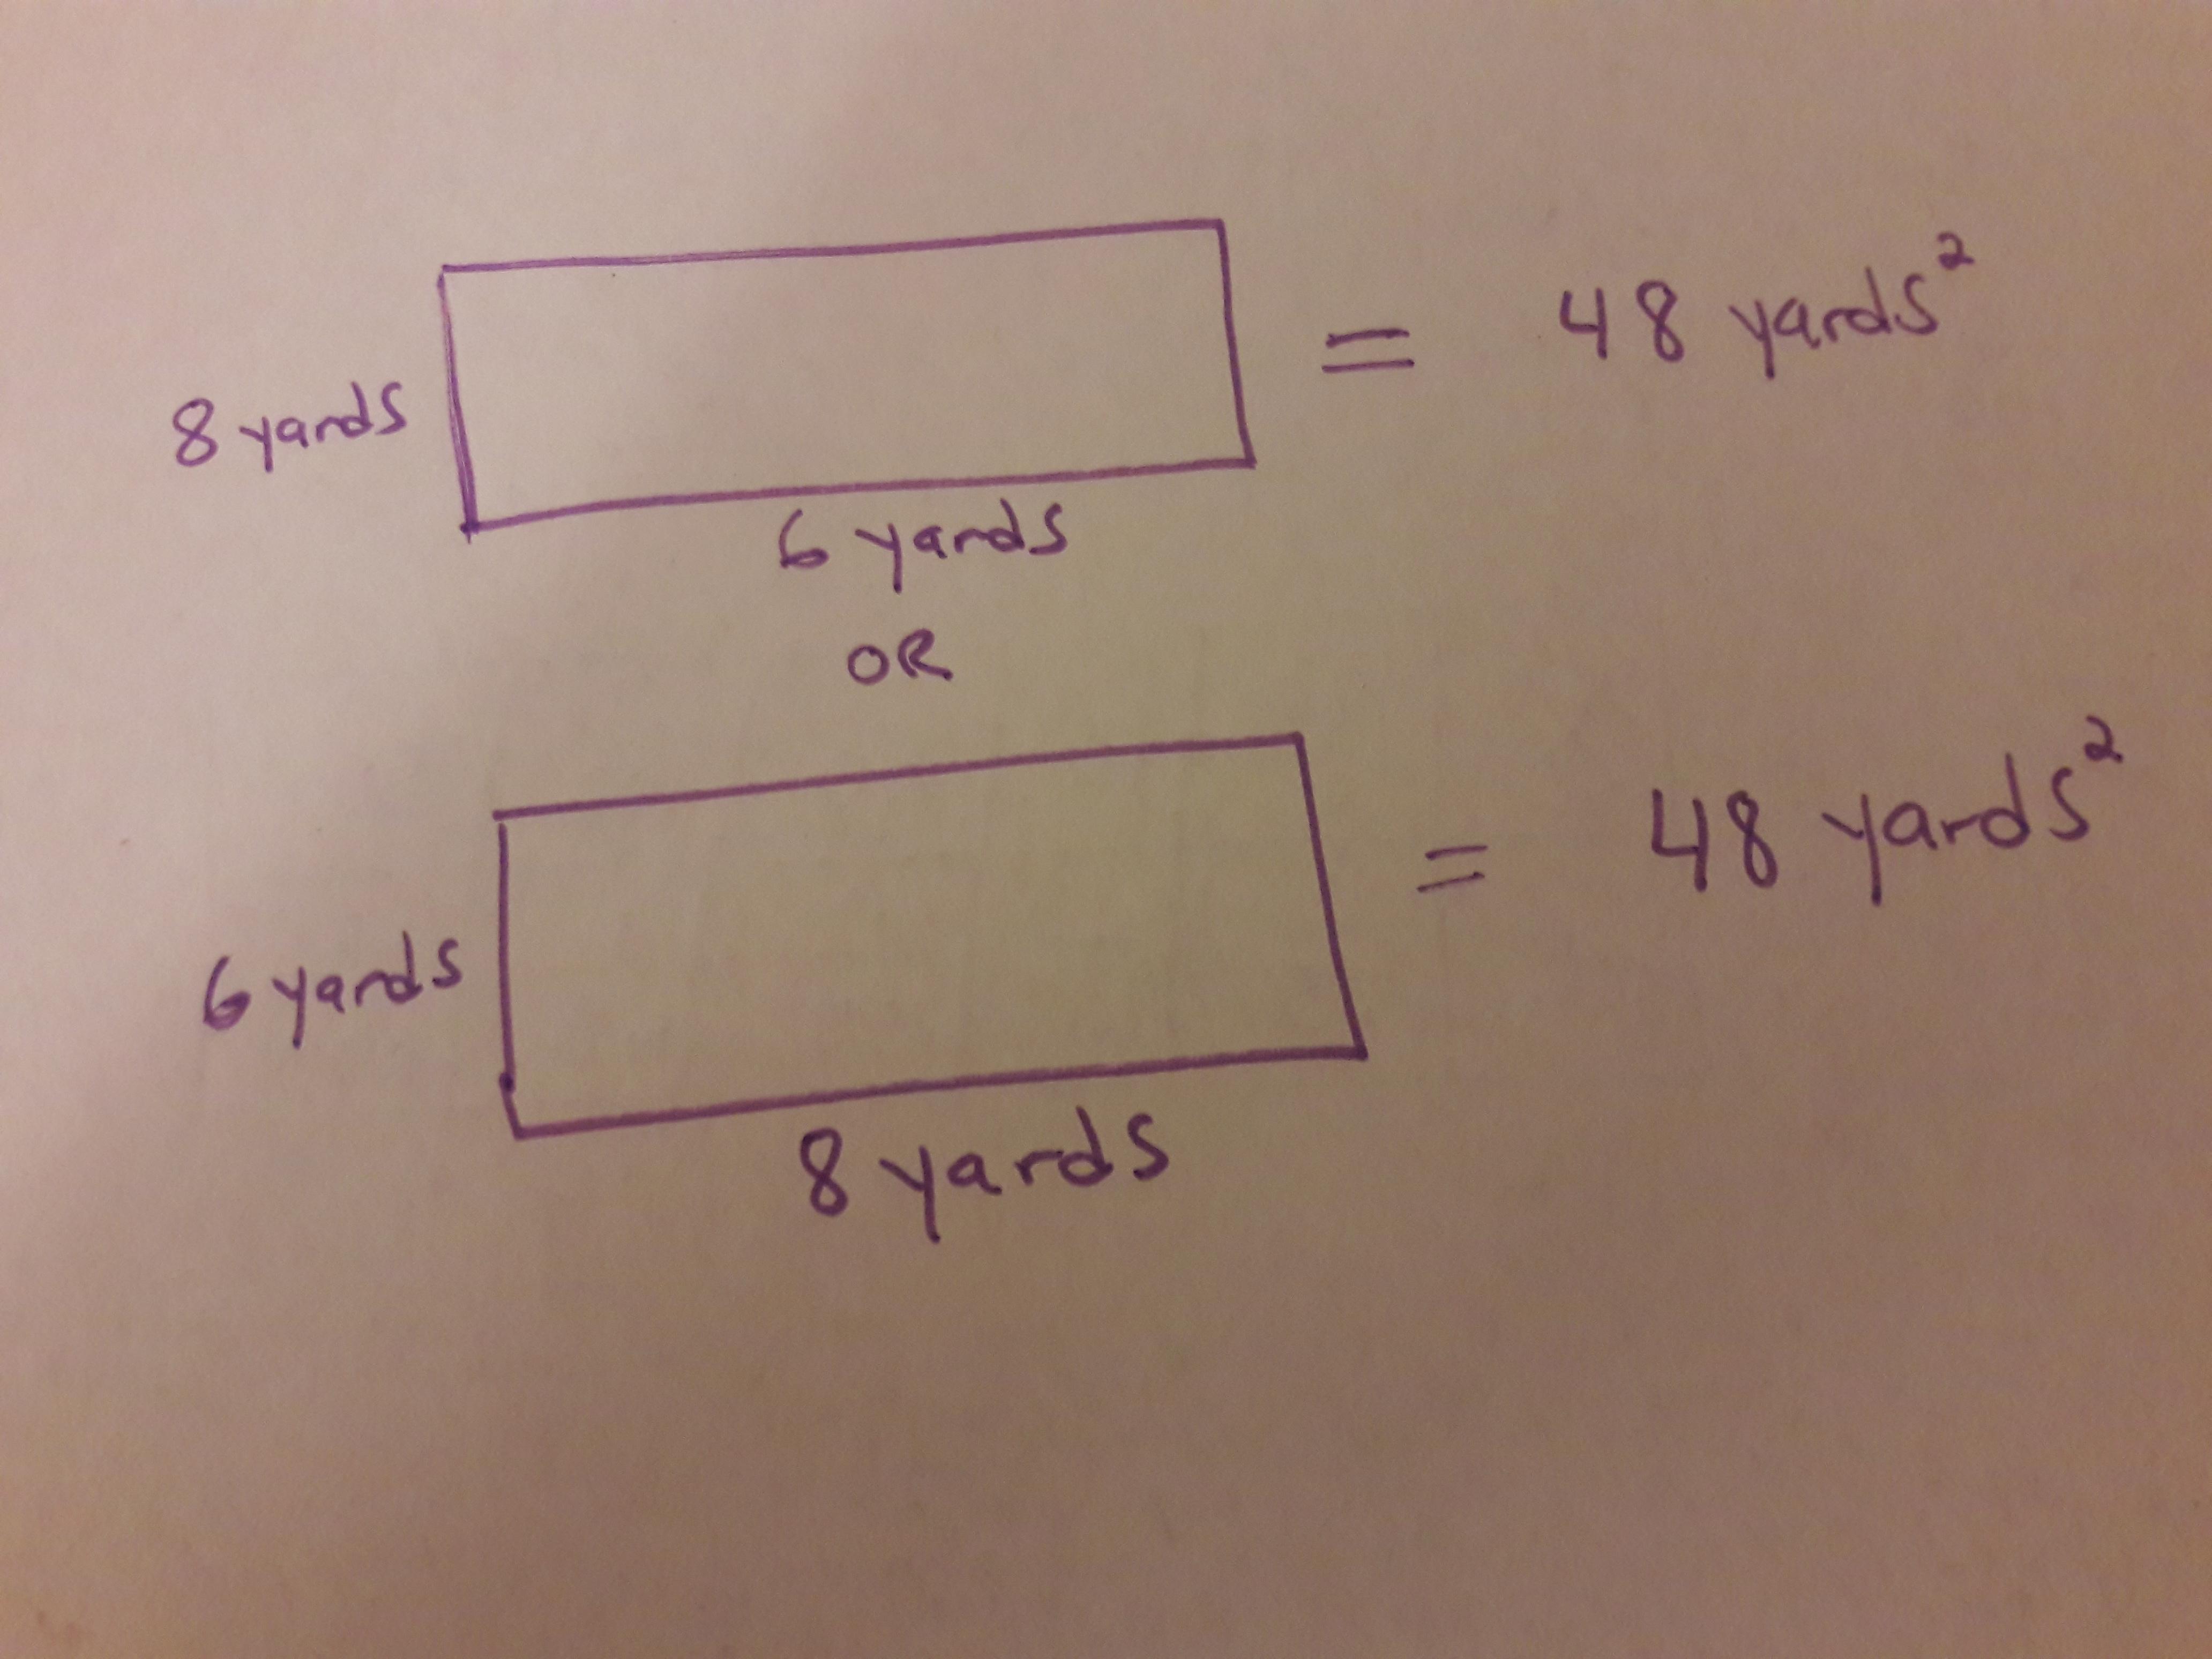 8 yards
= 48 yards²
6 yards
OR
6 yards
= 48 yards²
8 yards